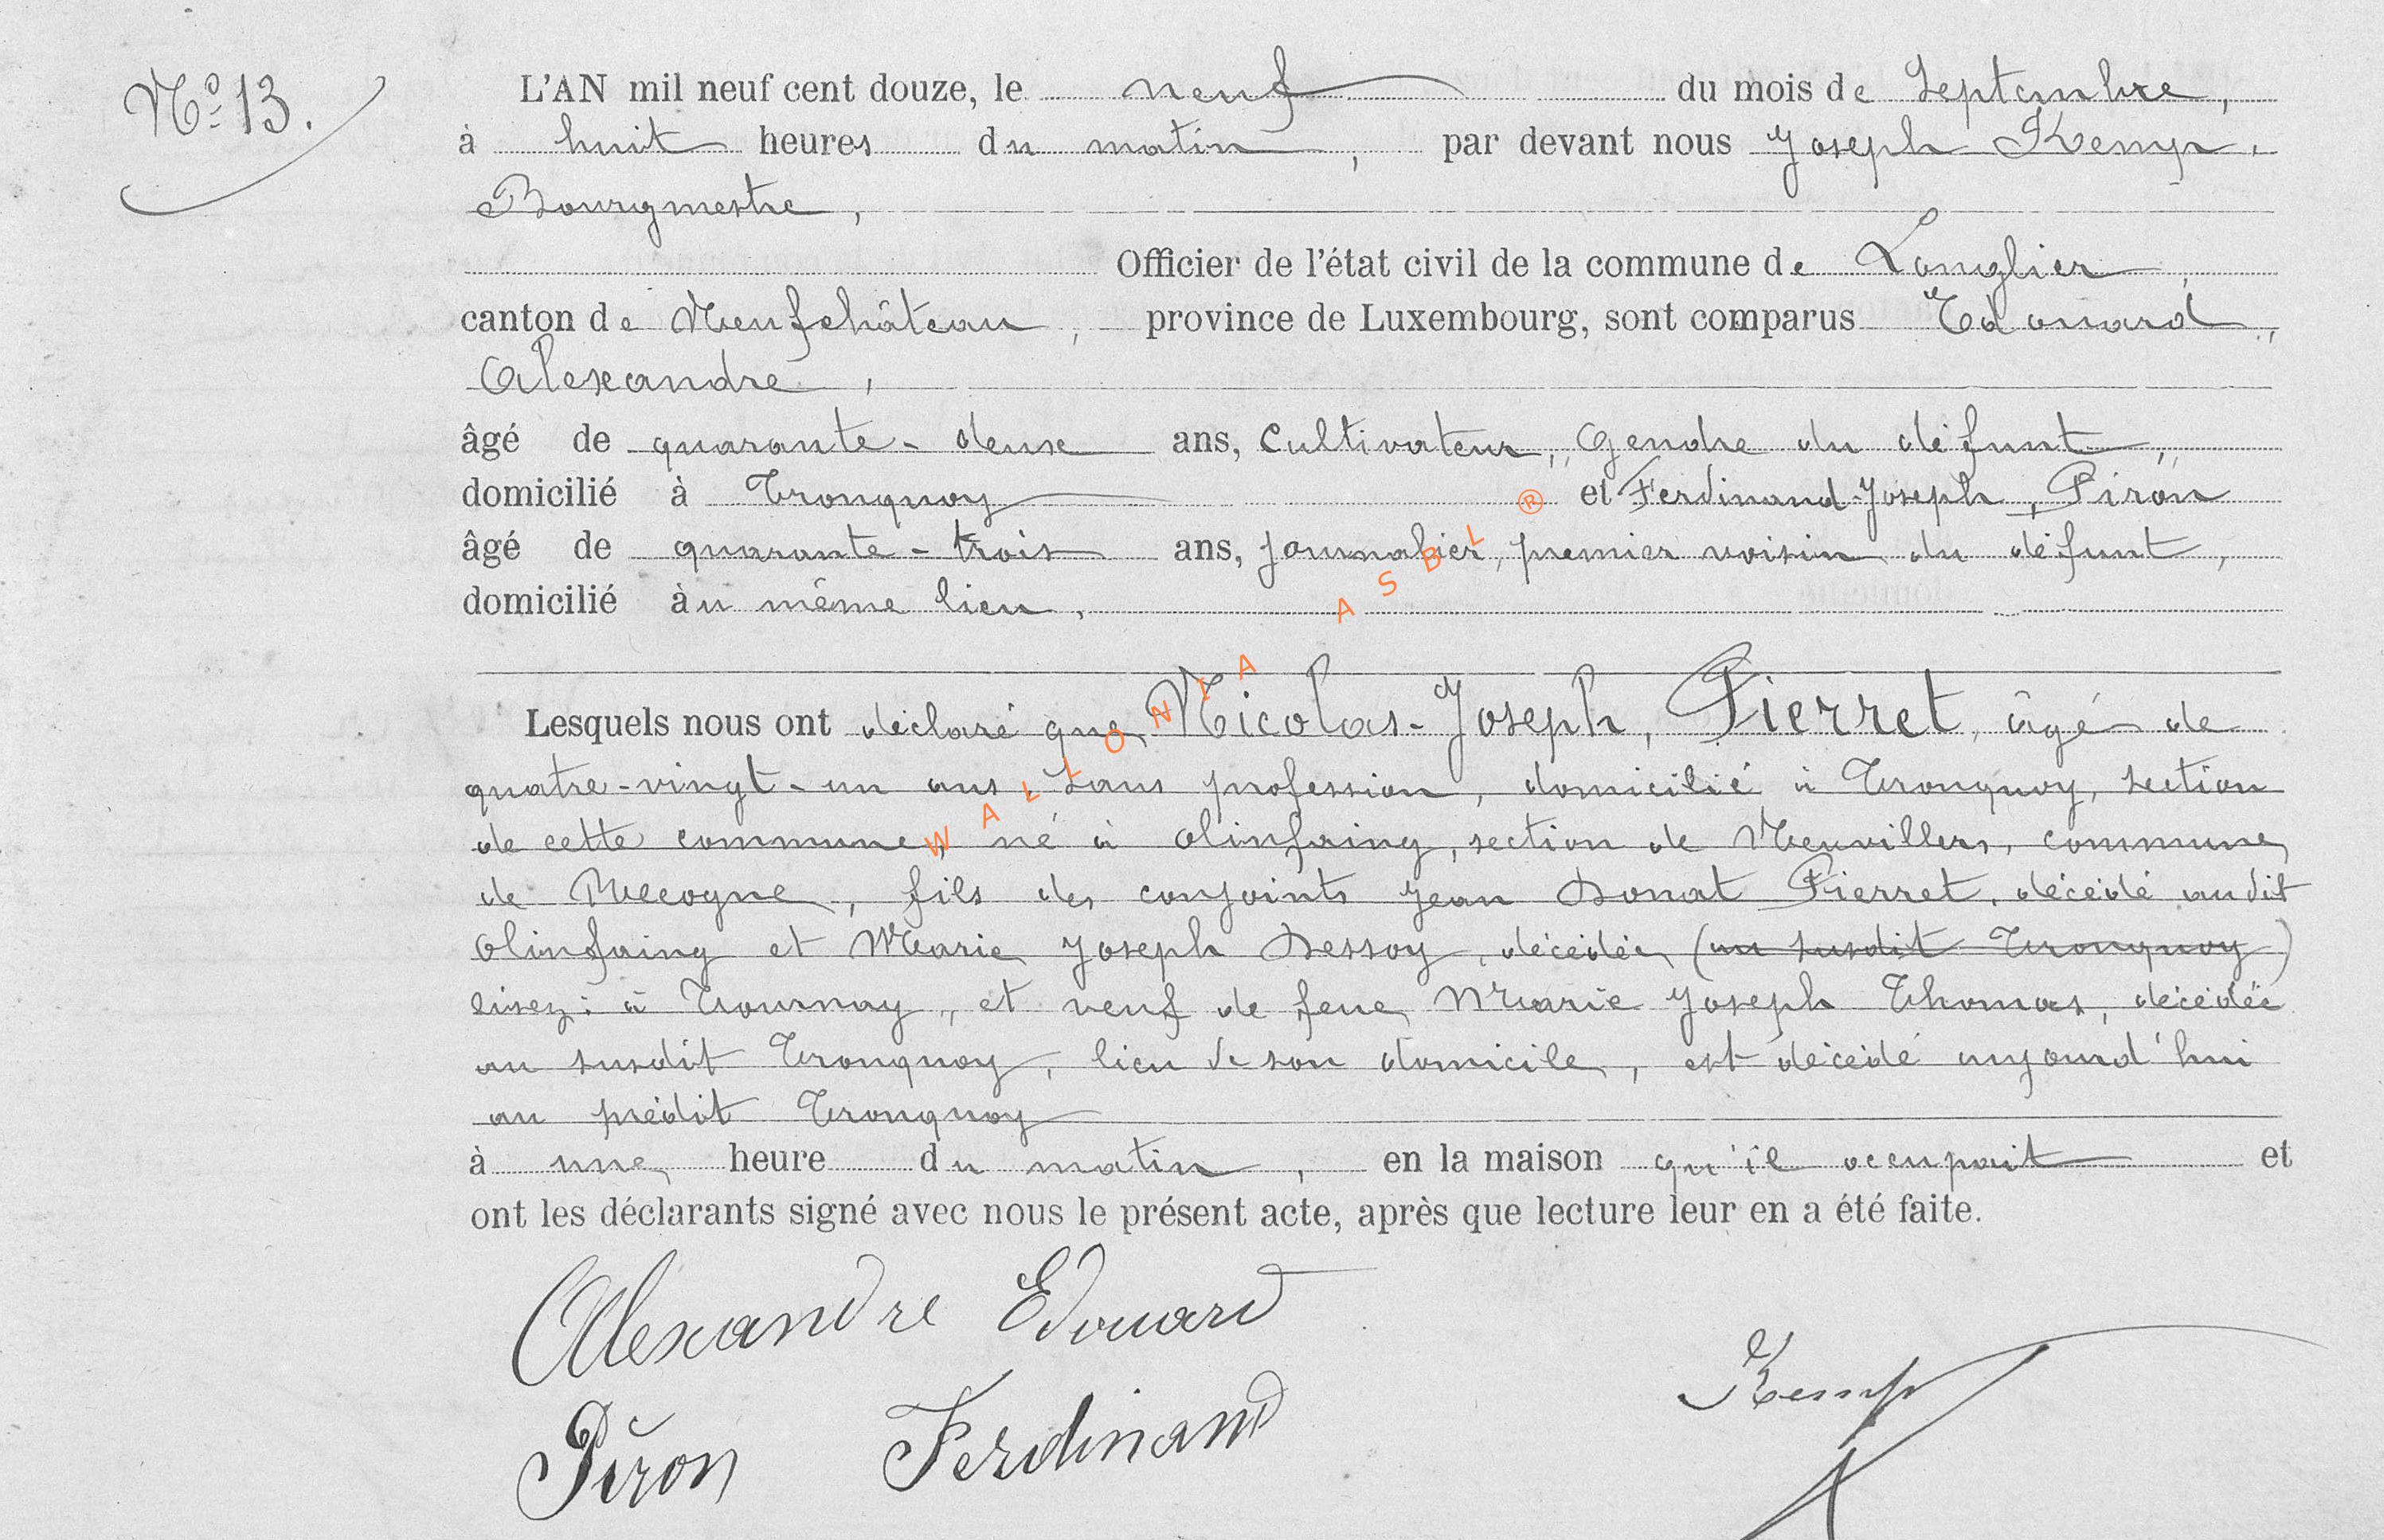 N° 13.
L'AN mil neuf cent douze, le neuf du mois de Septembre,
à huit heures du matin, par devant nous Joseph Kemp,
Bourgmestre,
Officier de l'état civil de la commune de Longlier,
canton de Neufchâteau, province de Luxembourg, sont comparus Edouard,
Alexandre,
âgé de quarante-deux ans, Cultivateur, Gendre du défunt,
domicilié à Tronquoy et Ferdinand-Joseph, Piron
âgé de quarante-trois ans, Journalier, premier voisin du défunt,
domicilié au même lieu,
Lesquels nous ont déclaré que Nicolas-Joseph, Pierret, âgé de
quatre-vingt-un ans, sans profession, domicilié à Tronquoy, section
de cette commune, né à Olinfaing, section de Neuvillers, commune
de Recogne, fils des conjoints Jean Donat Pierret, décédé audit
Olinfaing et Marie Joseph Dessoy, décédée (au susdit Tronquoy)
lisez: à Tournay, et veuf de feue Marie Joseph Thomas, décédée
au susdit Tronquoy, lieu de son domicile, est décédé aujourd'hui
au prédit Tronquoy
à une heure du matin, en la maison qu'il occupait et
ont les déclarants signé avec nous le présent acte, après que lecture leur en a été faite.
Alexandre Edouard
Kemp
Piron Ferdinand
WALLONIA ASBL ®